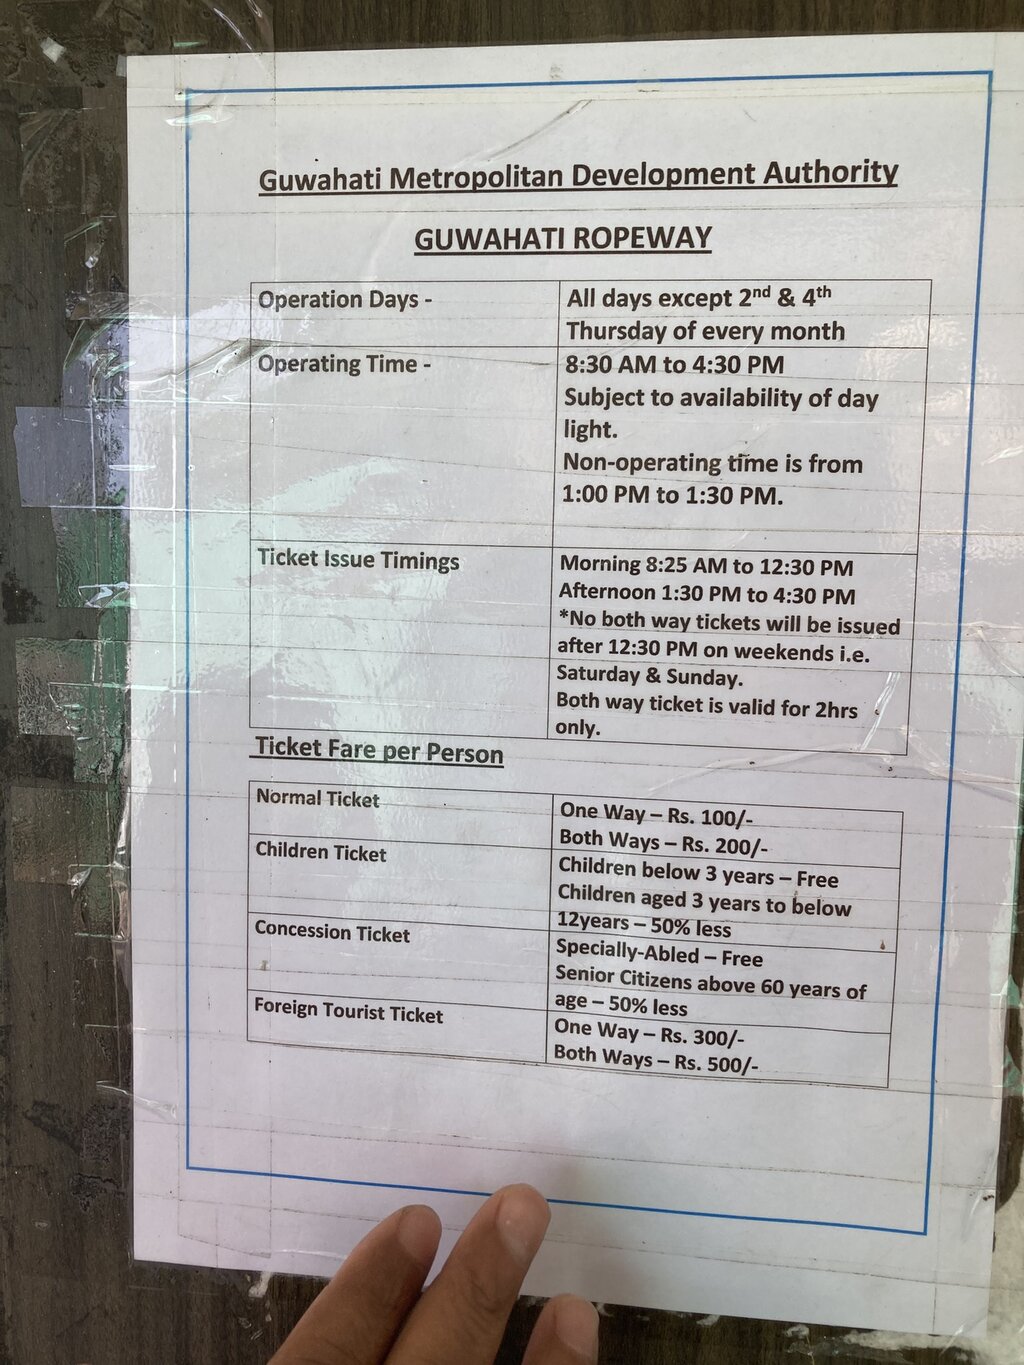 Guwahati Metropolitan Development Authority
GUWAHATI ROPEWAY
Operation Days -
All days except 2nd & 4th
Thursday of every month
Operating Time -
8:30 AM to 4:30 PM
Subject to availability of day
light.
Non-operating time is from
1:00 PM to 1:30 PM.
Ticket Issue Timings
Morning 8:25 AM to 12:30 PM
Afternoon 1:30 PM to 4:30 PM
*No both way tickets will be issued
after 12:30 PM on weekends i.e.
Saturday & Sunday.
Both way ticket is valid for 2hrs
only.
Ticket Fare per Person
Normal Ticket
One Way – Rs. 100/-
Both Ways – Rs. 200/-
Children Ticket
Children below 3 years – Free
Children aged 3 years to below
12years – 50% less
Concession Ticket
Specially-Abled – Free
Senior Citizens above 60 years of
age – 50% less
Foreign Tourist Ticket
One Way – Rs. 300/-
Both Ways – Rs. 500/-